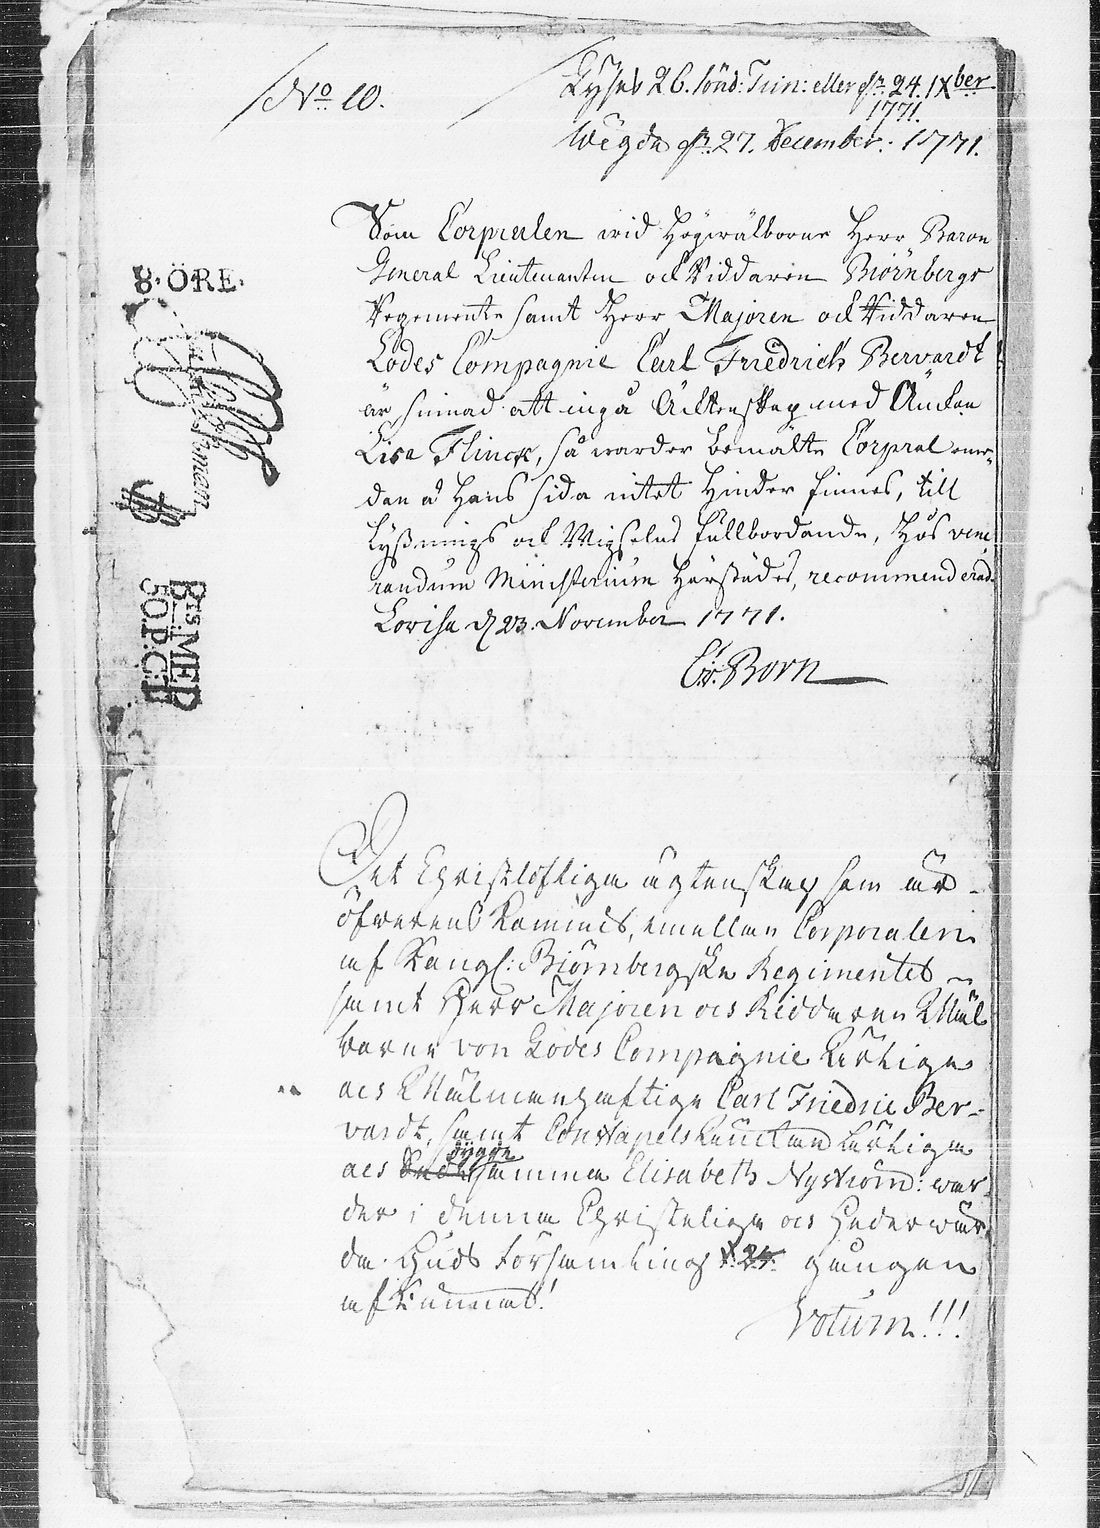 No 10.
Lyses 26. sönd: Trin: eller d. 24. IXber
1771.
Wigde d. 27. December. 1771.
8. ÖRE.
Som Corpralen wid Högwälborne Herr Baron
General Lieutenanten och Riddaren Biörnbergs
Regemente samt Herr Majoren och Riddaren
Lodes Compagnie Carl Friedrich Bervardt
är sinnad att ingå Ächtenskap med Änckan
Lisa Flinck, så warder bemälte Corpral emе-
dan å Hans sida intet Hinder finnes, till
Lyßnings och Wigselns fullbordande, Hos vene
randum Ministerium Härstädes, recommenderad.
Lovisa d 23. November 1771.
Born
BTS: MED
50.P:C:T
Det Christloflige ägtenskap som är
öfwerens kommit, emellan Corporalen
af Kongl: Biörnbergske Regimentet
samt Herr Majoren och Ridderen Wäl
borne von Lodes Compagnie Ährlige
och Wälmanhaftige Carl Friedric Ber-
vardt, samt Constapels Enckan Ährliga
och dygde samma Elisabeth Nyström: war
der i denna Christeliga och Hederwär
da Guds Församling 1.2.3. gången
afkunnat!
Votum!!!